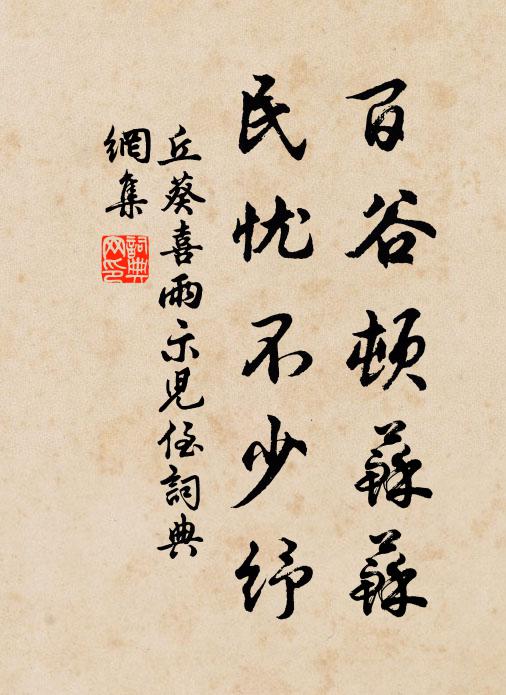 百谷顿蘇蘇
民忧不少纾
丘葵喜雨示兒侄詞典
網集
詞典
网印